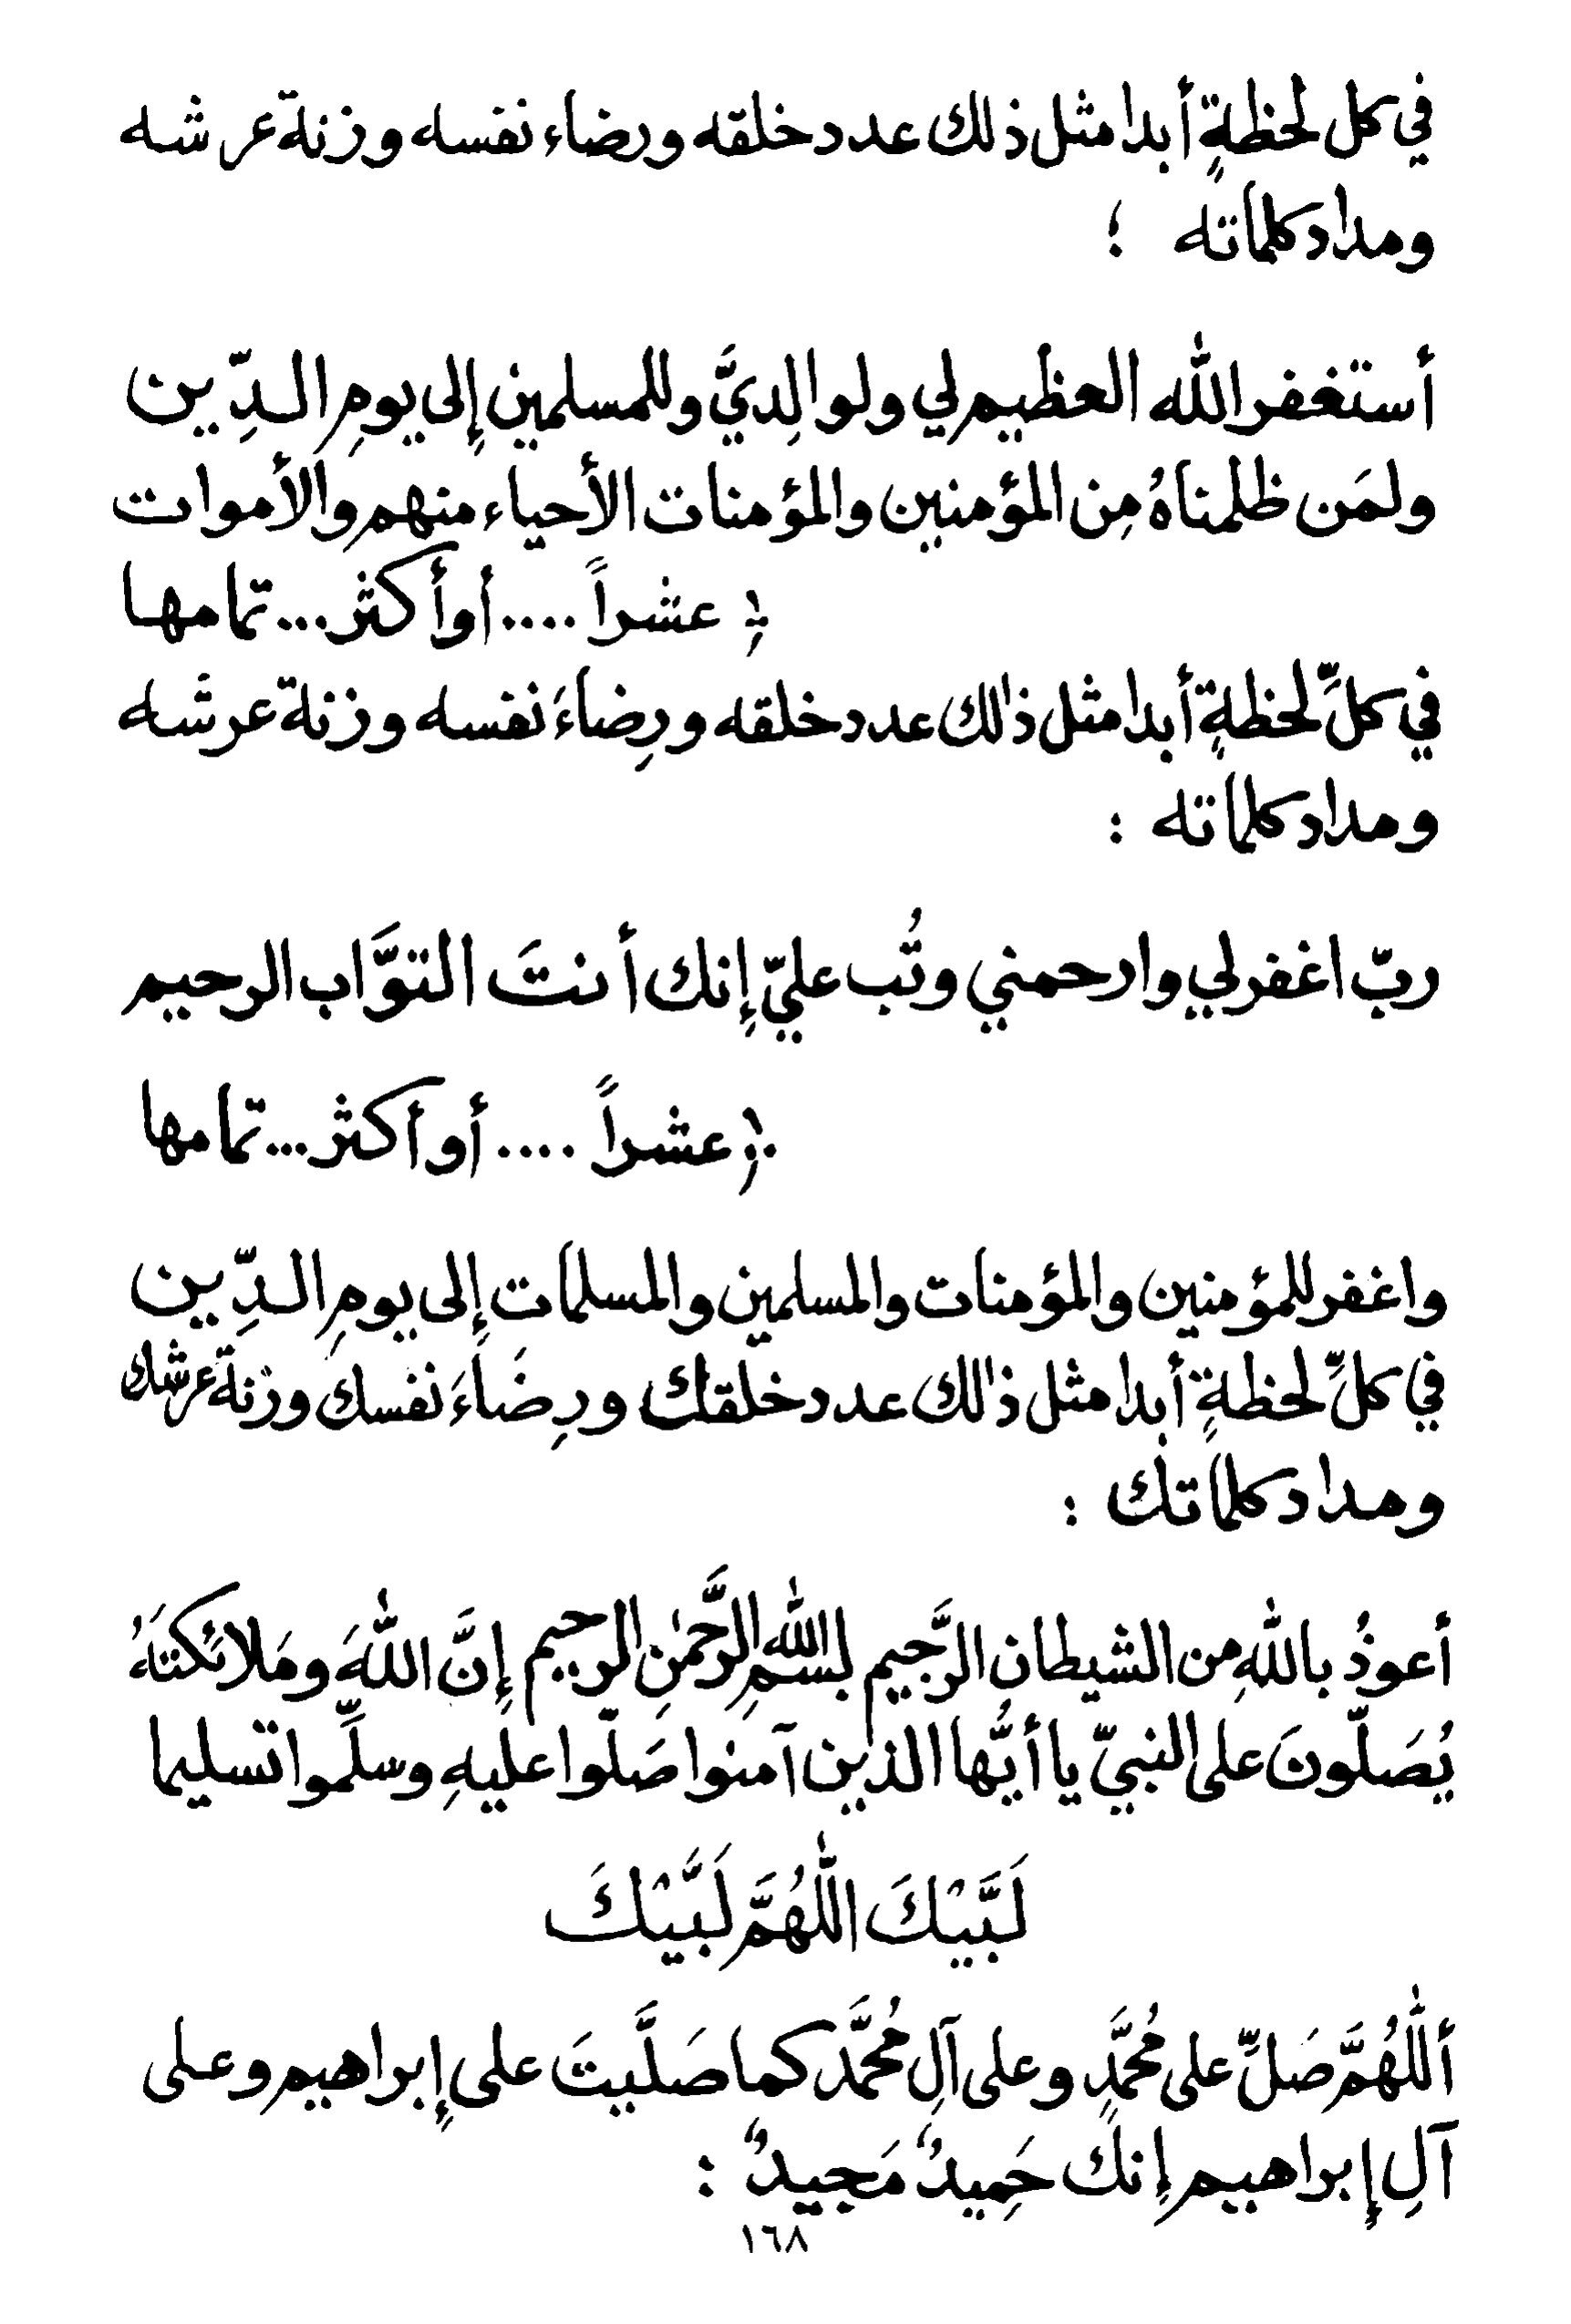 في كل لحظةٍ أبدا مثل ذلك عدد خلقه ورضاء نفسه وزنة عرشه
ومداد كلماته ؛
أستغفر الله العظيم لي ولوالِديَّ وللمسلمين إِلى يومِ الدِّين
ولمَن ظلمناهُ مِن المؤمنين والمؤمنات الأحياء منهم والأموات
عشراً .... أو أكثر ... تمامها
في كلِّ لحظةٍ أبدا مثل ذالك عدد خلقه ورِضاءَ نفسه وزنة عرشَه
ومداد كلماته :
ربّ اغفر لي وارحمني وتُب عليّ إِنك أنتَ التوَّاب الرحيم
عشراً .... أو أكثر ... تمامها
واغفر للمؤمنين والمؤمنات والمسلمين والمسلمات إِلى يومِ الدِّين
في كلِّ لحظةٍ أبدا مثل ذالك عدد خلقك ورِضَاءَ نفسك وزنة عرشك
ومداد كلماتك :
أعوذُ باللهِ من الشيطانِ الرَّجيم بسمِ اللهِ الرَّحمٰنِ الرحيم إِنَّ اللهَ ومَلائكتَهُ
يُصَلّونَ على النبيّ يا أيُّها الذين آمنوا صَلّوا عليهِ وسلِّموا تسليما
لَبَّيْكَ اللّهُمَّ لَبَّيْكَ
أللّهُمَّ صَلِّ على مُحمَّدٍ وعلى آلِ مُحمَّد كما صَلَّيتَ على إِبراهيم وعلى
آلِ إِبراهيم إِنك حَمِيدٌ مَجيدٌ :
١٦٨